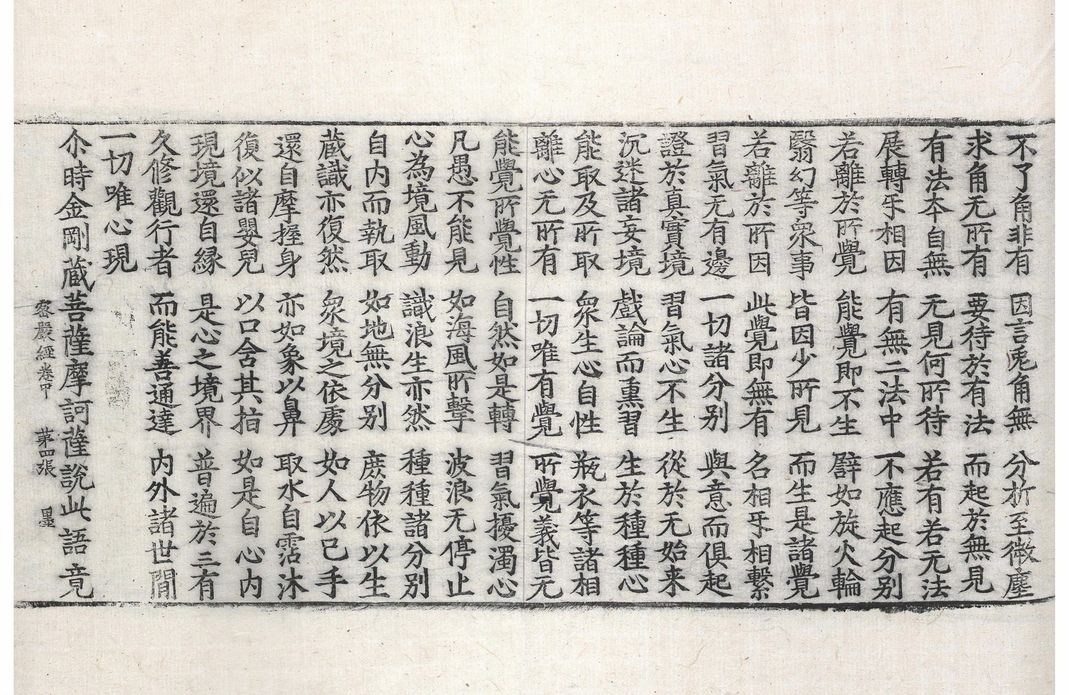 不了角非有 因言兎角無 分析至微塵
求角无所有 要待於有法 而起於無見
有法本自無 无見何所待 若有若无法
展轉互相因 有無二法中 不應起分別
若離於所覺 能覺即不生 譬如旋火輪
翳幻等衆事 皆因少所見 而生是諸覺
若離於所因 此覺即無有 名相互相繫
習氣无有邊 一切諸分別 與意而俱起
證於真實境 習氣心不生 從於无始来
沉迷諸妄境 戲論而熏習 生於種種心
能取及所取 衆生心自性 瓶衣等諸相
離心无所有 一切唯有覺 所覺義皆无
能覺所覺性 自然如是轉 習氣擾濁心
凡愚不能見 如海風所擊 波浪无停止
心為境風動 識浪生亦然 種種諸分別
自内而執取 如地無分別 庶物依以生
蔵識亦復然 衆境之依處 如人以己手
還自摩握身 亦如象以鼻 取水自霑沐
復似諸嬰兒 以口含其指 如是自心内
現境還自緣 是心之境界 普遍於三有
久修觀行者 而能善通達 内外諸世間
一切唯心現
尒時金剛蔵菩薩摩訶薩說此語竟
密嚴經卷中 第四張